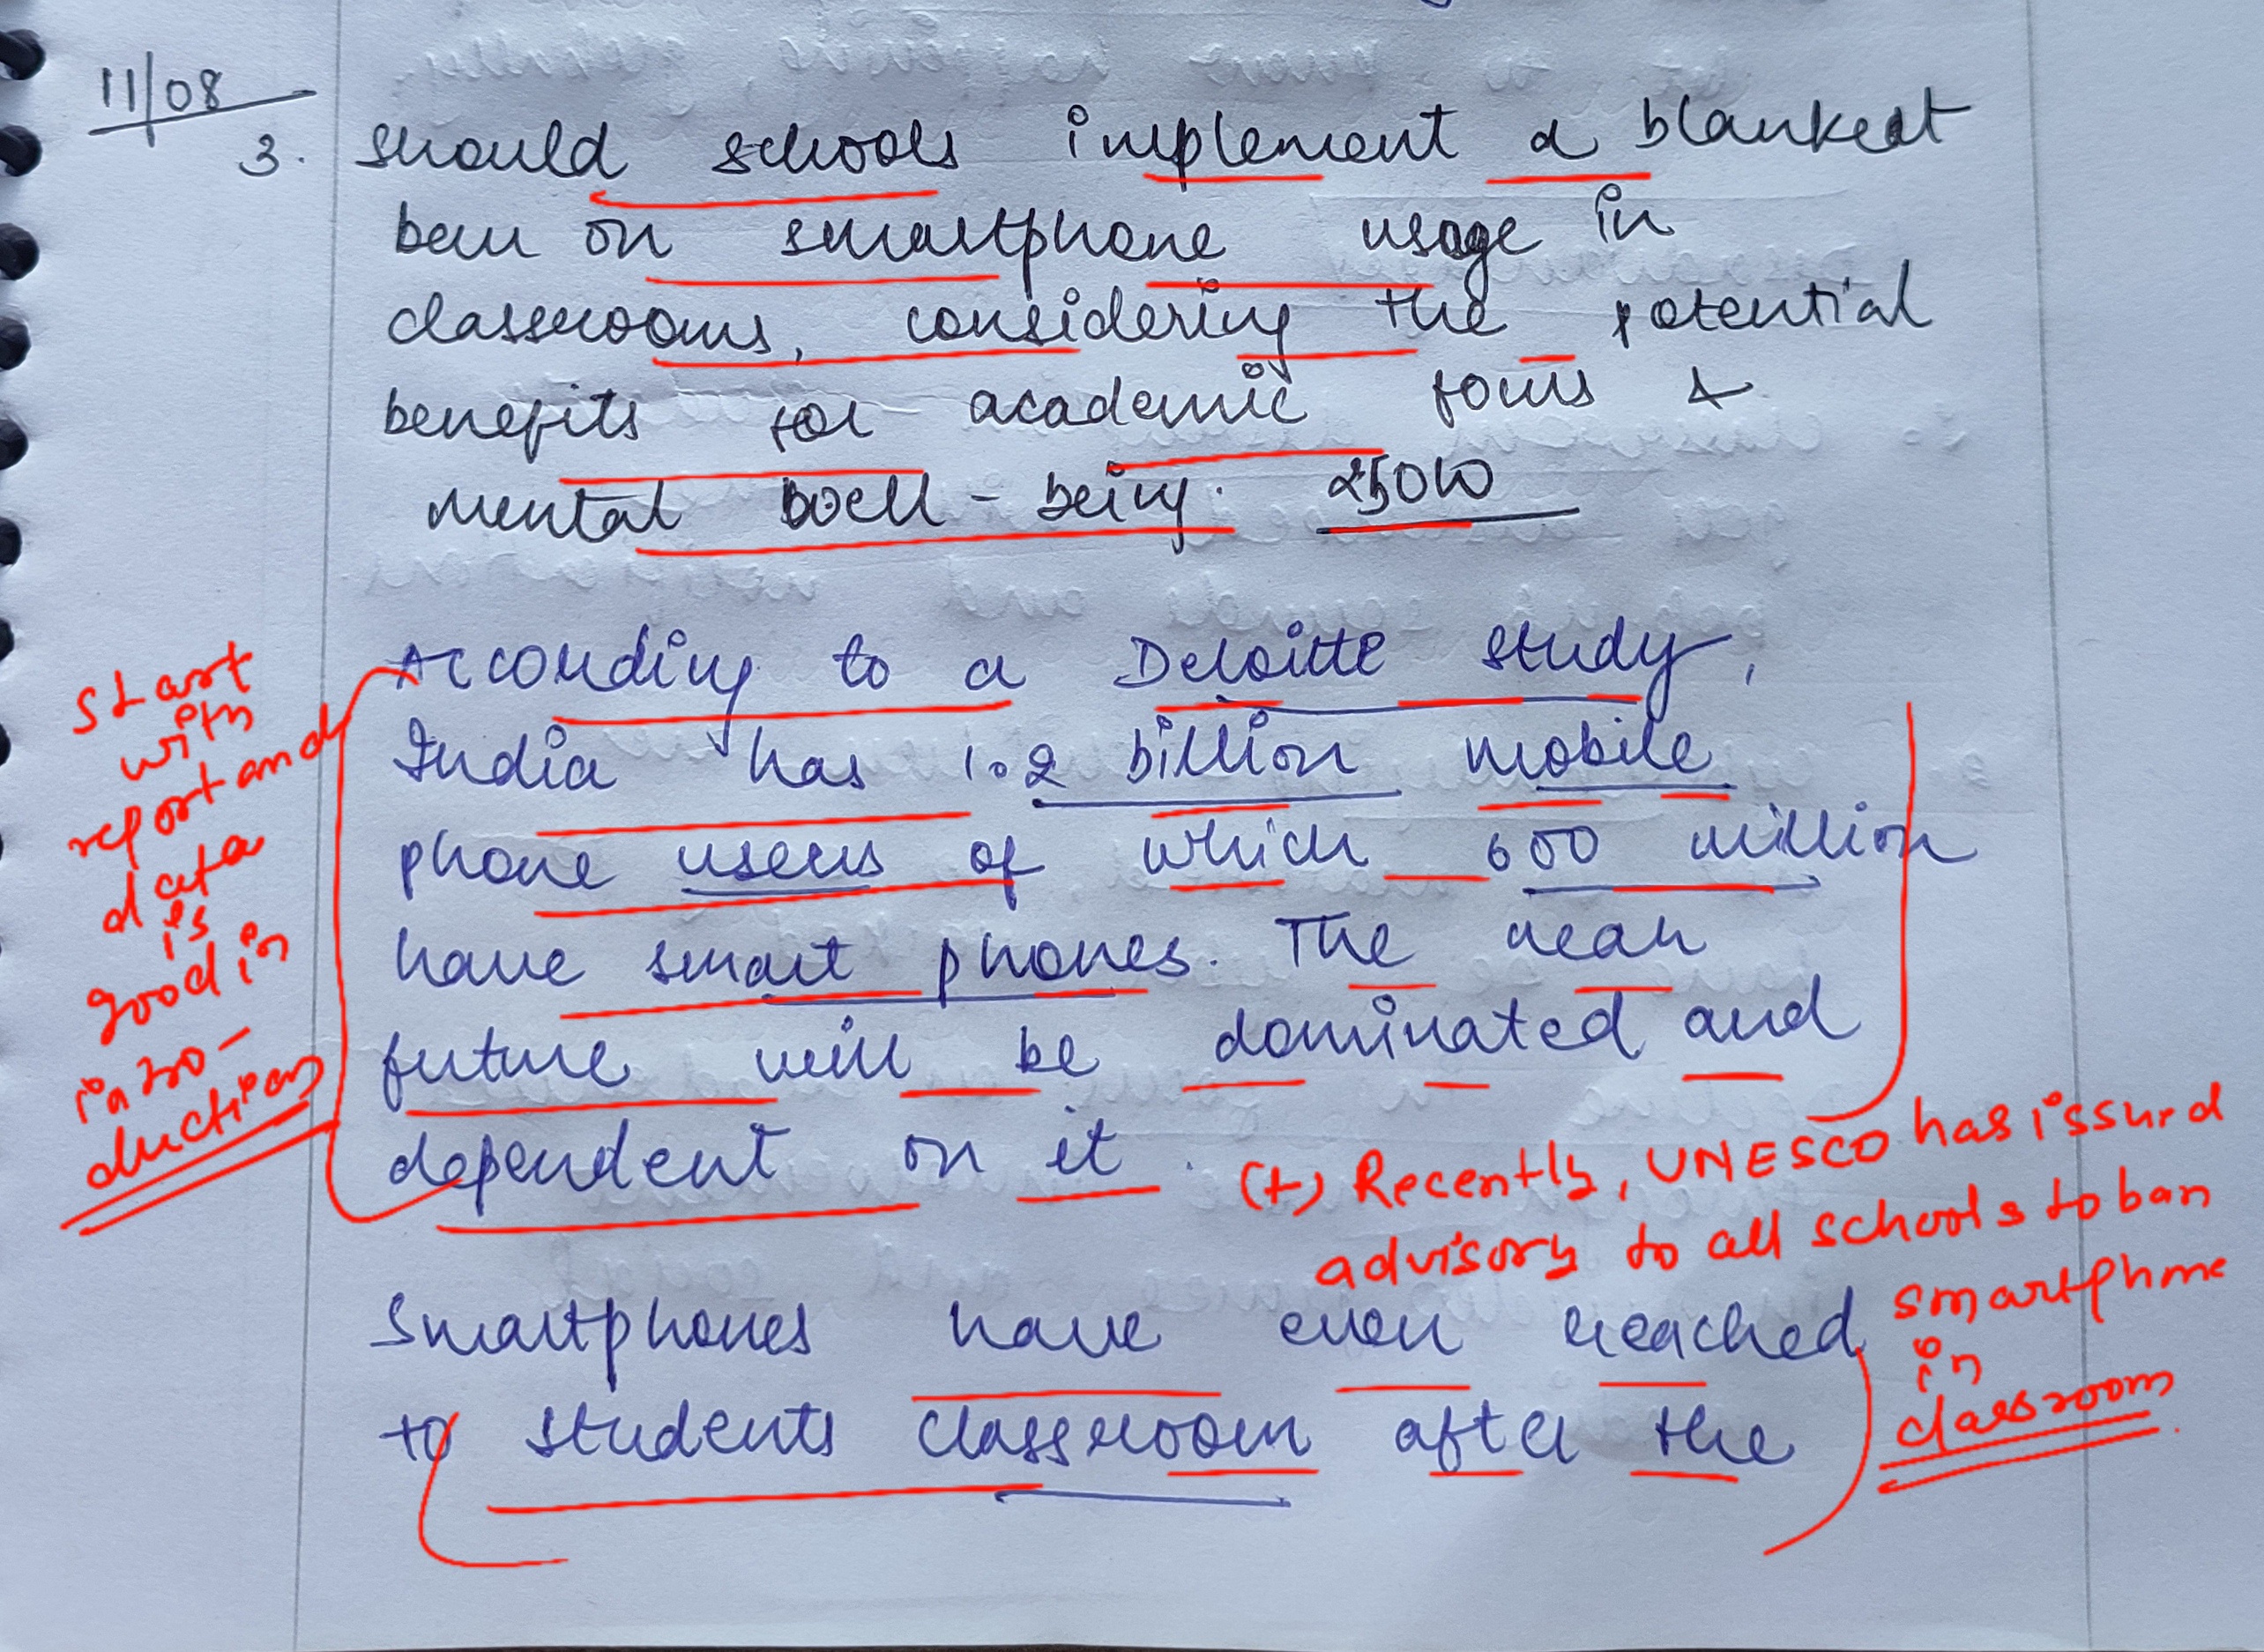 11/08
3. should schools implement a blankeat
ban on smartphone usage in
classrooms, considering the potential
benefits for academic focus &
mental well-being. 250W
According to a Deloitte study,
India has 1.2 billion mobile
phone users of which 600 million
have smart phones. The near
future will be dominated and
dependent on it.
Smartphones have even reached
to students classroom after the
start
with
report and
data
is
good in
intro-
duction
(+) Recently, UNESCO has issued
advisory to all schools to ban
smartphone
in
classroom